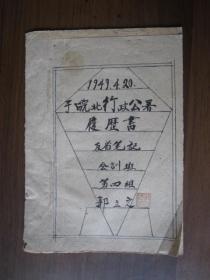 1949.4.20.
于皖北行政公署
履歷書
反省笔記
会訓班
第四組
郭立